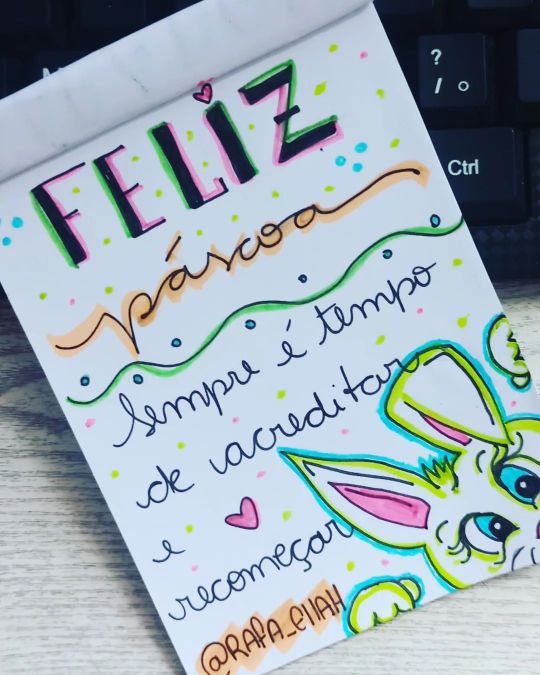 FELIZ
páscoa
Sempre é tempo
de acreditar
e
recomeçar
@RAFA_ELIAH
?
/ °
Ctrl